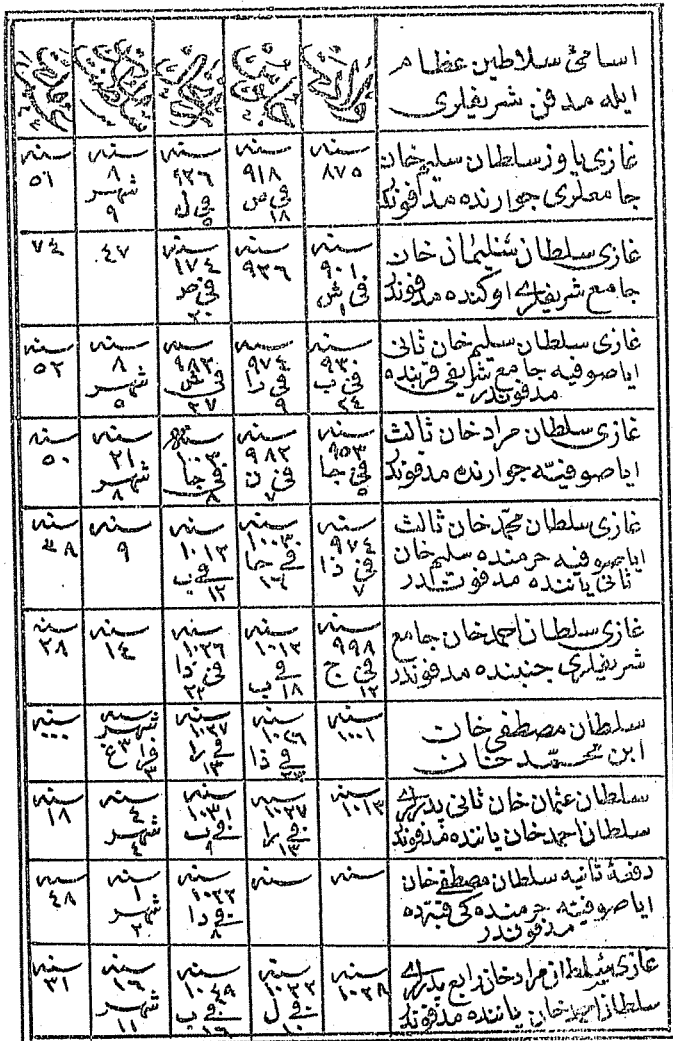 اسامئ سلاطين عظام
ايله مدفن شريفلرى
غازى ياوز سلطان سليم خان
جامعلرى جوارنده مدفوندر
سنه ٨٧٥
سنه ٩١٨ فى ص ١٨
سنه ٩٢٦ فى ل ٩
سنه ٨ شهر ٩
سنه ٥١
غازى سلطان سليمان خان
جامع شريفلرى اوكنده مدفوندر
سنه ٩٠١ فى ش ١
سنه ٩٢٦
سنه ١٧٤ فى ص ٢٠
٤٧
٧٤
غازى سلطان سليم خان ثانى
اياصوفيه جامع شريفى قربنده
مدفوندر
سنه ٩٣٠ فى ب ٢٤
سنه ٩٧٤ فى را ٩
سنه ٩٨٢ فى ش ٢٧
سنه ٨ شهر ٥
سنه ٥٢
غازى سلطان مراد خان ثالث
اياصوفيه جوارنده مدفوندر
سنه ٩٥٣ فى جا ٥
سنه ٩٨٢ فى ن ٧
سنه ١٠٠٣ فى جا ٨
سنه ٢١ شهر ٨
سنه ٥٠
غازى سلطان محمد خان ثالث
اياصوفيه حرمنده سليم خان
ثانى ياننده مدفوندر
سنه ٩٧٤ فى ذا ٧
سنه ١٠٠٣ فى جا ١٦
سنه ١٠١٢ فى ب ١٢
سنه ٩
سنه ٣٨
غازى سلطان احمد خان جامع
شريفلرى جنبنده مدفوندر
سنه ٩٩٨ فى ج ١٢
سنه ١٠١٢ فى ب ١٨
سنه ١٠٢٦ فى ذا ٢٣
سنه ١٤
سنه ٢٨
سلطان مصطفى خان
ابن محمد خان
سنه ١٠٠١
سنه ١٠٢٦ فى ذا ٢٣
سنه ١٠٢٧ فى را ١٣
شهر ٣
سنه ٠٠٠
سلطان عثمان خان ثانى پدرلرى
سلطان احمد خان ياننده مدفوندر
سنه ١٠١٣
سنه ١٠٢٧ فى را ١٣
سنه ١٠٣١ فى ب ٩
سنه ٤ شهر ٤
سنه ١٨
دفعهٔ ثانيه سلطان مصطفى خان
اياصوفيه حرمنده كى قبه ده
مدفوندر
سنه
سنه
سنه ١٠٢٢ فى دا ٨
سنه ١ شهر ٢
سنه ٤٨
غازى سلطان مراد خان رابع پدرلرى
سلطان احمد خان ياننده مدفوندر
سنه ١٠٢٨
سنه ١٠٣٢ فى ل ١٠
سنه ١٠٤٩ فى ب ١٦
سنه ١٦ شهر ١١
سنه ٣١